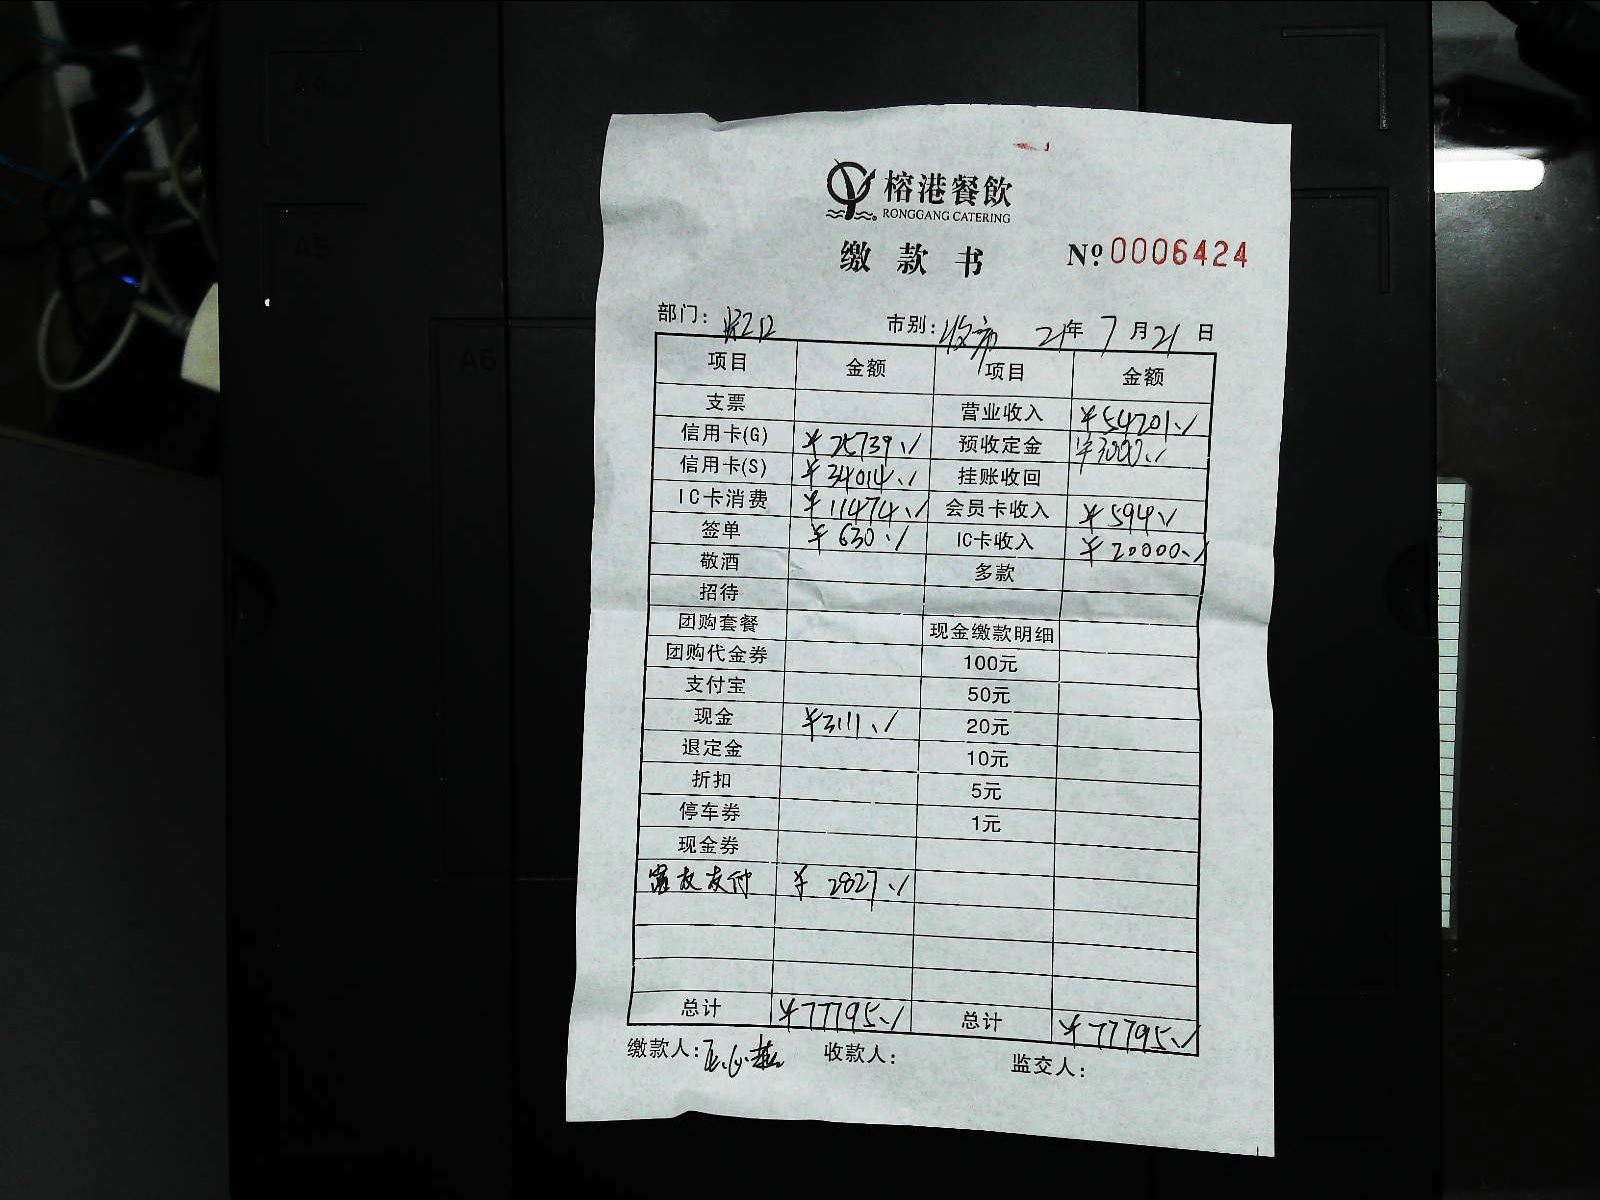 榕港餐飲
RONGGANG CATERING
缴款书 Nº 0006424
部门： 市别：收市 21年7月21日
项目 金额 项目 金额
支票 营业收入 ¥54201.✓
信用卡(G) ¥25739.✓ 预收定金 ¥3000.✓
信用卡(S) ¥34014.✓ 挂账收回
IC卡消费 ¥11474.✓ 会员卡收入 ¥594.✓
签单 ¥630.✓ IC卡收入 ¥20000.✓
敬酒 多款
招待
团购套餐 现金缴款明细
团购代金券 100元
支付宝 50元
现金 ¥3111.✓ 20元
退定金 10元
折扣 5元
停车券 1元
现金券
富友支付 ¥2827.✓
总计 ¥77795.✓ 总计 ¥77795.✓
缴款人： 收款人： 监交人：
A5
A6